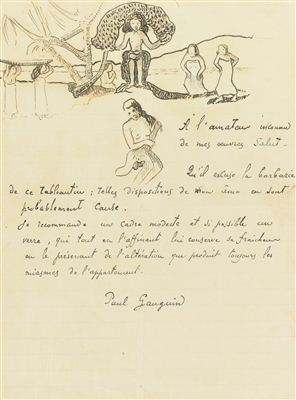 A l'amateur inconnu
de mes œuvres Salut -
Qu'il excuse la barbarie
de ce tableautin ; telles dispositions de mon âme en sont
probablement cause.
Je recommande un cadre modeste et si possible un
verre, qui tout en l'affinant lui conserve sa fraîcheur
en le préservant de l'altération que produit toujours les
miasmes de l'appartement.
Paul Gauguin